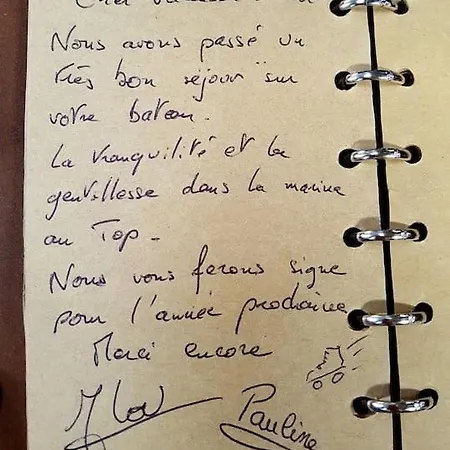 Nous avons passé un
très bon "séjour" sur
votre bateau.
La tranquilité et la
gentillesse dans la marina
au Top.
Nous vous ferons signe
pour l'année prochaine
Merci encore
Pauline